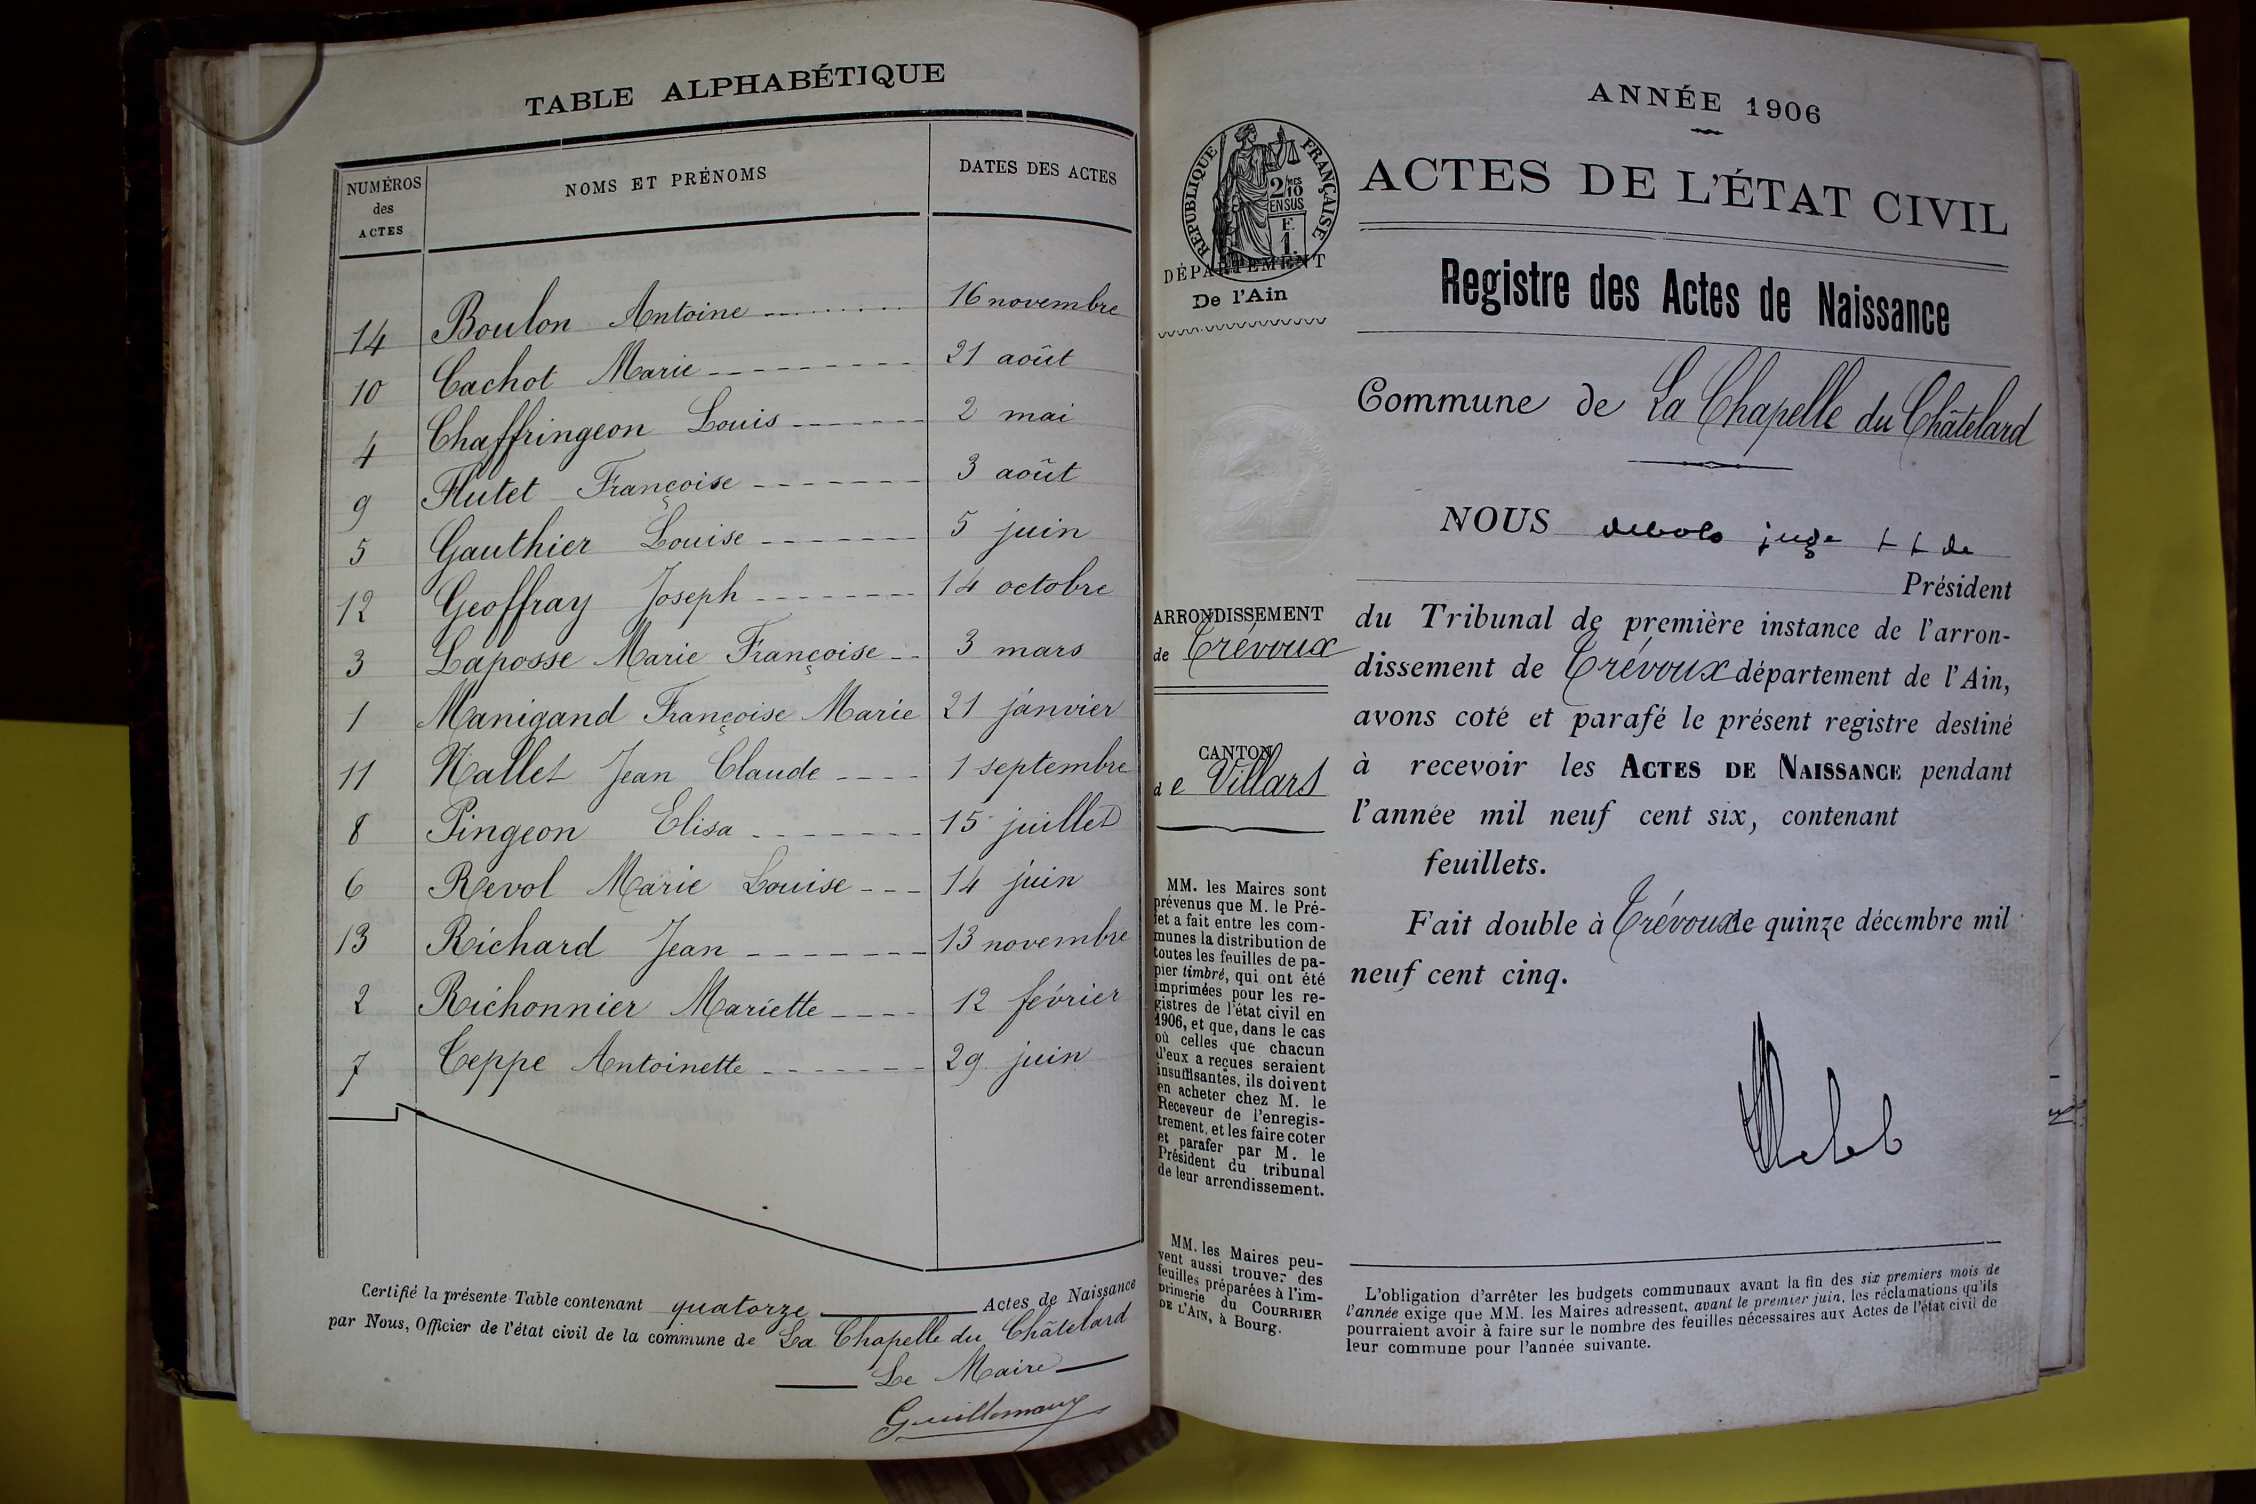 TABLE ALPHABÉTIQUE
NUMÉROS des ACTES NOMS ET PRÉNOMS DATES DES ACTES
14 Boulon Antoine 16 novembre
10 Cachot Marie 21 août
4 Chaffringeon Louis 2 mai
9 Flutet Françoise 3 août
5 Gauthier Louise 5 juin
12 Geoffray Joseph 14 octobre
3 Laposse Marie Françoise 3 mars
1 Manigand Françoise Marie 21 janvier
11 Nallet Jean Claude 1 septembre
8 Pingeon Elisa 15 juillet
6 Revol Marie Louise 14 juin
13 Richard Jean 13 novembre
2 Richonnier Mariette 12 février
7 Teppe Antoinette 29 juin
Certifié la présente Table contenant quatorze Actes de Naissance
par Nous, Officier de l'état civil de la commune de La Chapelle du Châtelard
Le Maire
Guillomaux
ANNÉE 1906
RÉPUBLIQUE FRANÇAISE
2/10
EN SUS
F.
1.
DÉPARTEMENT
De l'Ain
ACTES DE L'ÉTAT CIVIL
Registre des Actes de Naissance
Commune de La Chapelle du Châtelard
NOUS juge
Président
du Tribunal de première instance de l'arron-
dissement de Trévoux département de l'Ain,
avons coté et parafé le présent registre destiné
à recevoir les ACTES DE NAISSANCE pendant
l'année mil neuf cent six, contenant
feuillets.
Fait double à Trévoux le quinze décembre mil
neuf cent cinq.
ARRONDISSEMENT
de Trévoux
CANTON
de Villars
MM. les Maires sont
prévenus que M. le Pré-
fet a fait entre les com-
munes la distribution de
toutes les feuilles de pa-
pier timbré, qui ont été
imprimées pour les re-
gistres de l'état civil en
1906, et que, dans le cas
où celles que chacun
d'eux a reçues seraient
insuffisantes, ils doivent
en acheter chez M. le
Receveur de l'enregis-
trement, et les faire coter
et parafer par M. le
Président du tribunal
de leur arrondissement.
MM. les Maires peu-
vent aussi trouver des
feuilles préparées à l'im-
primerie du COURRIER
DE L'AIN, à Bourg.
L'obligation d'arrêter les budgets communaux avant la fin des six premiers mois de
l'année exige que MM. les Maires adressent, avant le premier juin, les réclamations qu'ils
pourraient avoir à faire sur le nombre des feuilles nécessaires aux Actes de l'état civil de
leur commune pour l'année suivante.